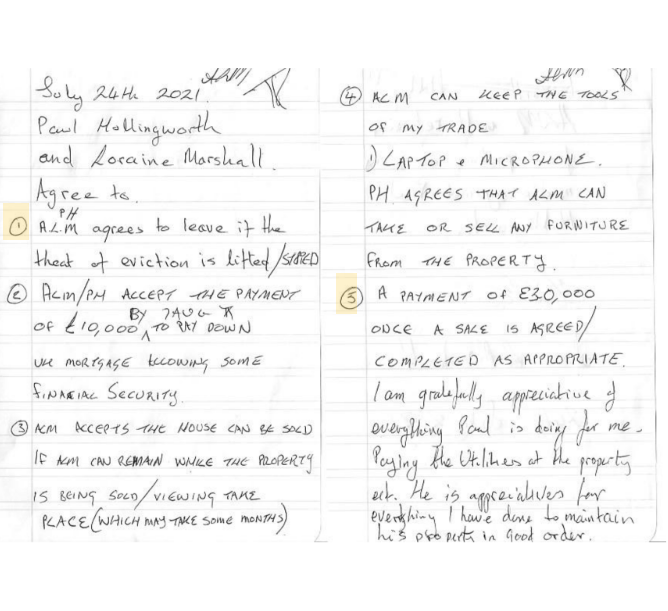 ALM
July 24th 2021.
Paul Hollingworth
and Loraine Marshall.
Agree to.
PH
① A.L.M agrees to leave if the
theat of eviction is lifted/STOPPED
② ALM/PH ACCEPT THE PAYMENT
BY 7AUG
OF £10,000 ^ TO PAY DOWN
UK MORTGAGE ALLOWING SOME
FINANCIAL SECURITY.
③ ALM ACCEPTS THE HOUSE CAN BE SOLD
IF ALM CAN REMAIN WHILE THE PROPERTY
IS BEING SOLD/VIEWING TAKE
PLACE (WHICH MAY TAKE SOME MONTHS)
④ ALM CAN KEEP THE TOOLS
OF MY TRADE
1) LAPTOP & MICROPHONE.
PH AGREES THAT ALM CAN
TAKE OR SELL ANY FURNITURE
FROM THE PROPERTY.
⑤ A PAYMENT OF £30,000
ONCE A SALE IS AGREED/
COMPLETED AS APPROPRIATE.
I am gratefully appreciative of
everything Paul is doing for me.
Paying the Utilities at the property
ect. He is appreciatives for
everything I have done to maintain
his property in good order.